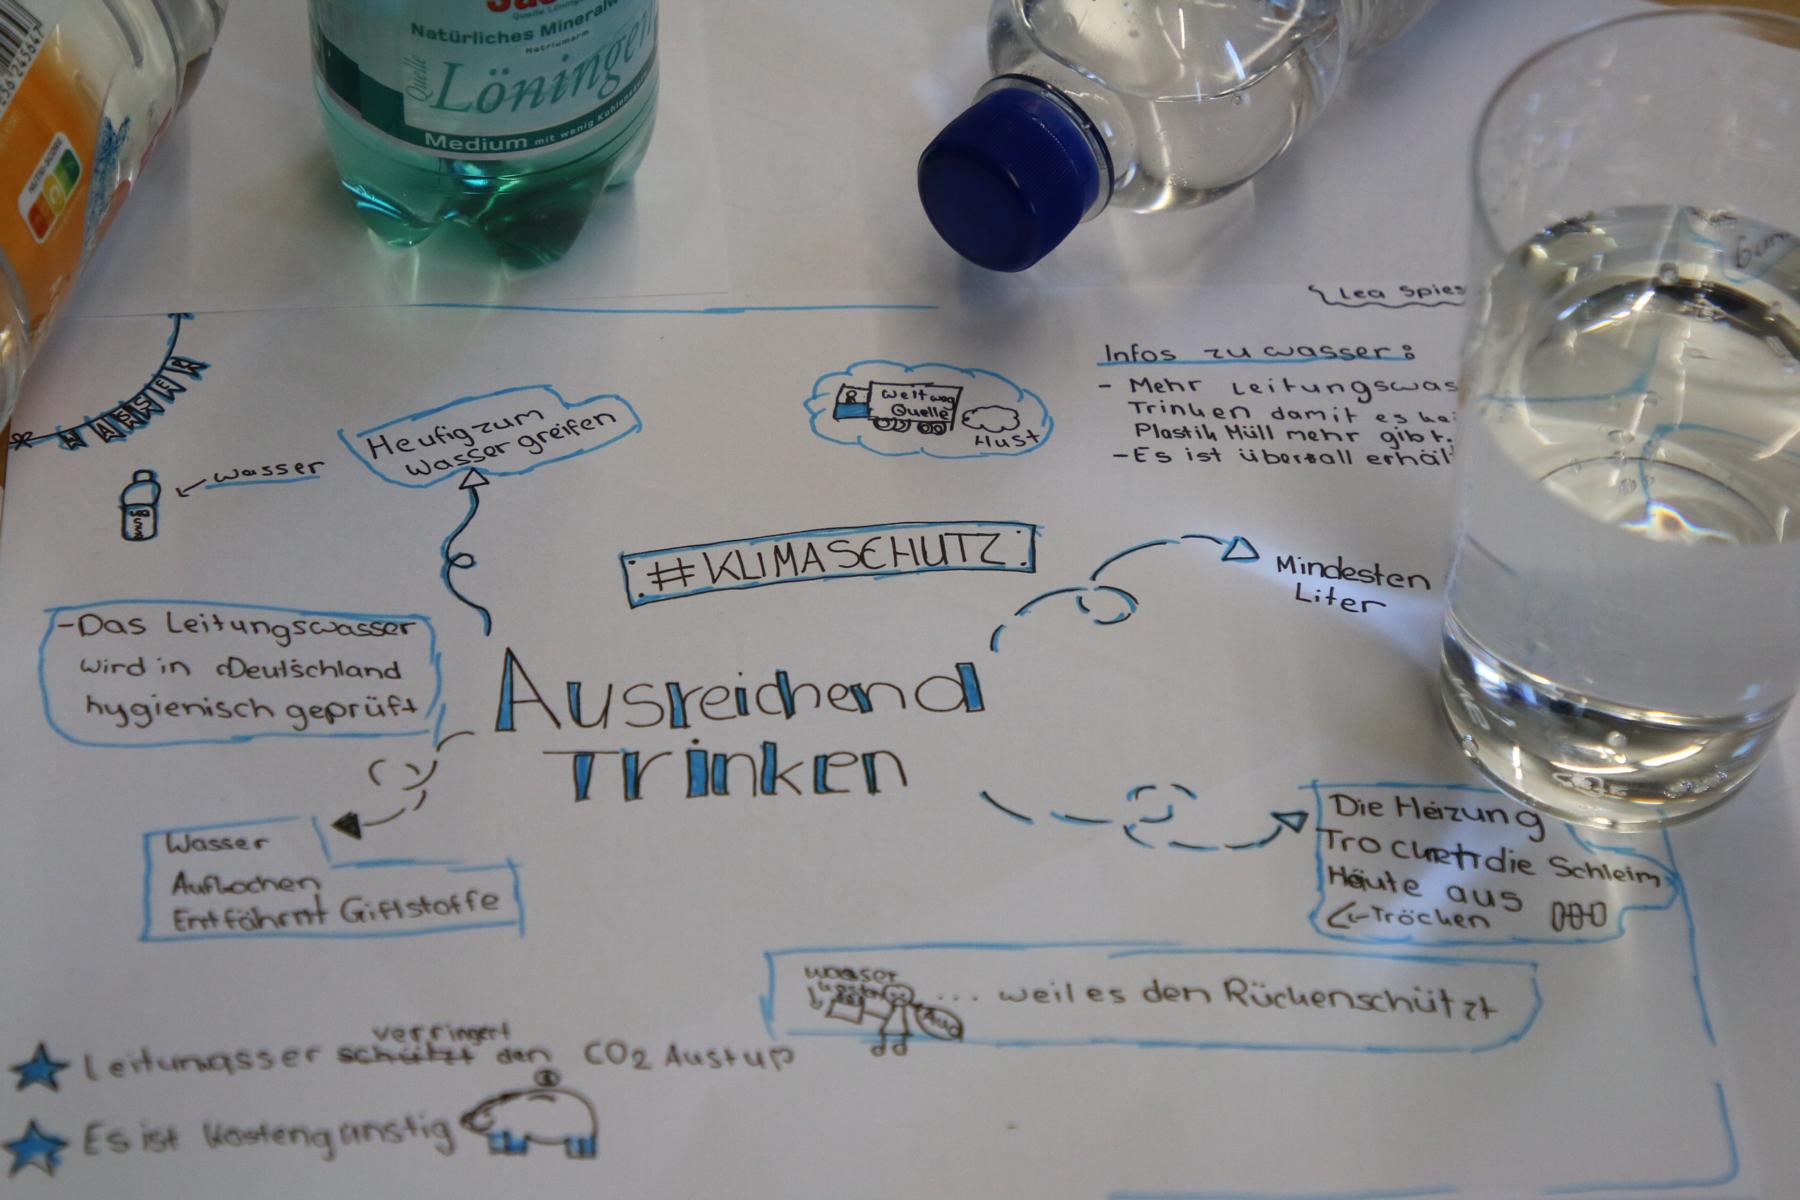 Natürliches Mineralw
Natriumarm
Quelle
Löningen
Medium mit wenig Kohlensä
Lea Spies
WASSER
wasser
Heufig zum
Wasser greifen
Welt weg
Quelle
Hust
Infos zu wasser:
- Mehr Leitungswas
Trinken damit es kei
Plastik Müll mehr gibt.
- Es ist überall erhäl
#KLIMASCHUTZ
Mindesten
Liter
- Das Leitungswasser
wird in Deutschland
hygienisch geprüft
Ausreichend
Trinken
Wasser
Aufkochen
Entfährnt Giftstoffe
Die Heizung
Trocknet die Schleim
Häute aus
<-Tröcken
wasser
... weil es den Rückenschützt
verringert
Leitunwasser schützt den CO2 Austup
Es ist Kostengünstig